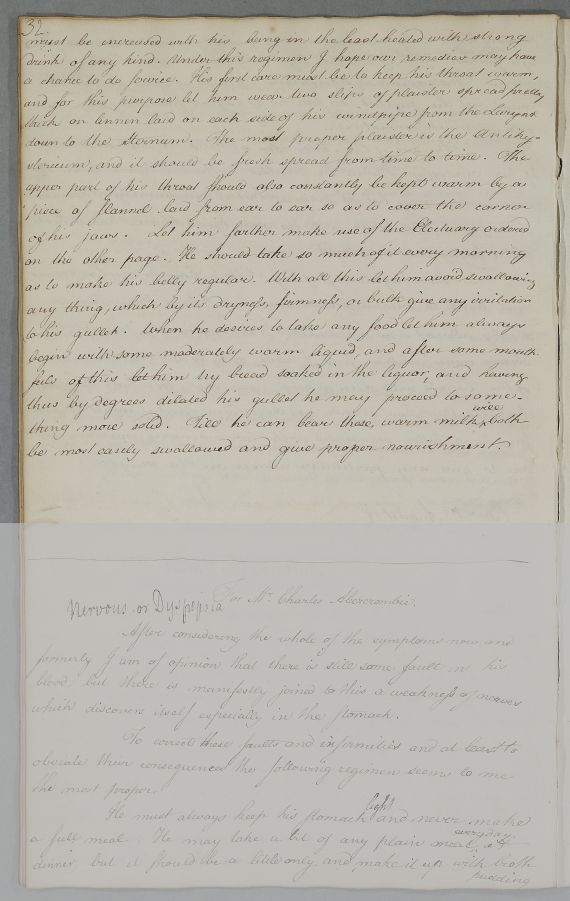 32.
must be increased with his being in the least heated with strong
drink of any kind. Under this regimen I hope our remedies may have
a chance to do service. His first care must be to keep his throat warm,
and for this purpose let him wear two slips of plaister spread pretty
thick on linnen laid on each side of his windpipe from the Larynx
down to the Sternum. The most proper plaister is the Antihy-
stericum, and it should be fresh spread from time to time. The
upper part of his throat should also constantly be kept warm by a
piece of flannel laid from ear to ear so as to cover the corner
of his jaws. Let him farther make use of the Electuary ordered
on the other page. He should take so much of it every morning
as to make his belly regular. With all this let him avoid swallowing
any thing, which by its dryness, firmness, or bulk give any irritation
to his gullet. When he desires to take any food let him always
begin with some moderately warm liquid, and after some mouth-
fuls of this let him try bread soaked in the liquor, and having
thus by degrees dilated his gullet he may proceed to some-
thing more solid. Till he can bear these, warm milk & broth will
be most easily swallowed and give proper nourishment.
For Mr. Charles Abercrombie.
Nervous or Dyspepsia
After considering the whole of the symptoms now and
formerly I am of opinion that there is still some fault in his
blood, but there is manifestly joined to this a weakness of nerves
which discovers itself especially in the stomach.
To correct these faults and infirmities and at least to
obviate their consequences the following regimen seems to me
the most proper.
He must always keep his stomach light and never make
a full meal. He may take a bit of any plain meat, at every day.
dinner but it should be a little only, and make it up with broth
pudding